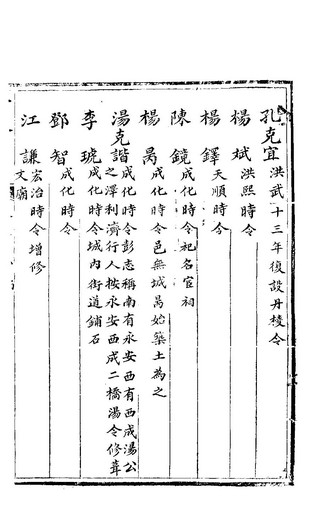 孔克宜 洪武十三年復設丹稜令
楊斌 洪熙時令
楊鐸 天順時令
陳鏡 成化時令祀名宦祠
楊昺 成化時令邑無城昺始築土為之
湯克諧 成化時令彭志稱南有永安西有西成湯公
之澤利濟行人按永安西成二橋湯令修葺
李琥 成化時令城內街道鋪石
鄧智 成化時令
江謙 宏治時令增修
文廟